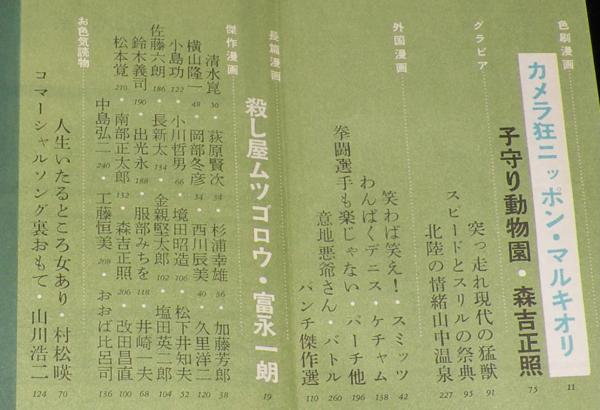 色刷漫画
カメラ狂ニッポン・マルキオリ 11
子守り動物園・森吉正照 75
グラビア
突っ走れ現代の猛獣 91
スピードとスリルの祭典 95
北陸の情緒山中温泉 227
外国漫画
笑わば笑え!・スミッツ 42
わんぱくデニス・ケチャム 138
拳闘選手も楽じゃない・パーチ他 196
意地悪爺さん・バトル 260
パンチ傑作選 110
長篇漫画
殺し屋ムツゴロウ・富永一朗 19
傑作漫画
清水崑 30・荻原賢次 34・杉浦幸雄 36・加藤芳郎 38
横山隆一 48・岡部冬彦 54・西川辰美 40・久里洋二 120
小島功 122・小川哲男 66・境田昭造 106・松下井知夫 52
佐藤六朗 186・長新太 134・金親堅太郎 102・塩田英二郎 104
鈴木義司 190・出光永 188・服部みちを 206・井崎一夫 68
松本覚 210・南部正太郎 132・森吉正照 118・改田昌直 100
中島弘二 240・工藤恒美 208・おおば比呂司 136
お色気読物
人生いたるところ女あり・村松暎 70
コマーシャルソング裏おもて・山川浩二 124